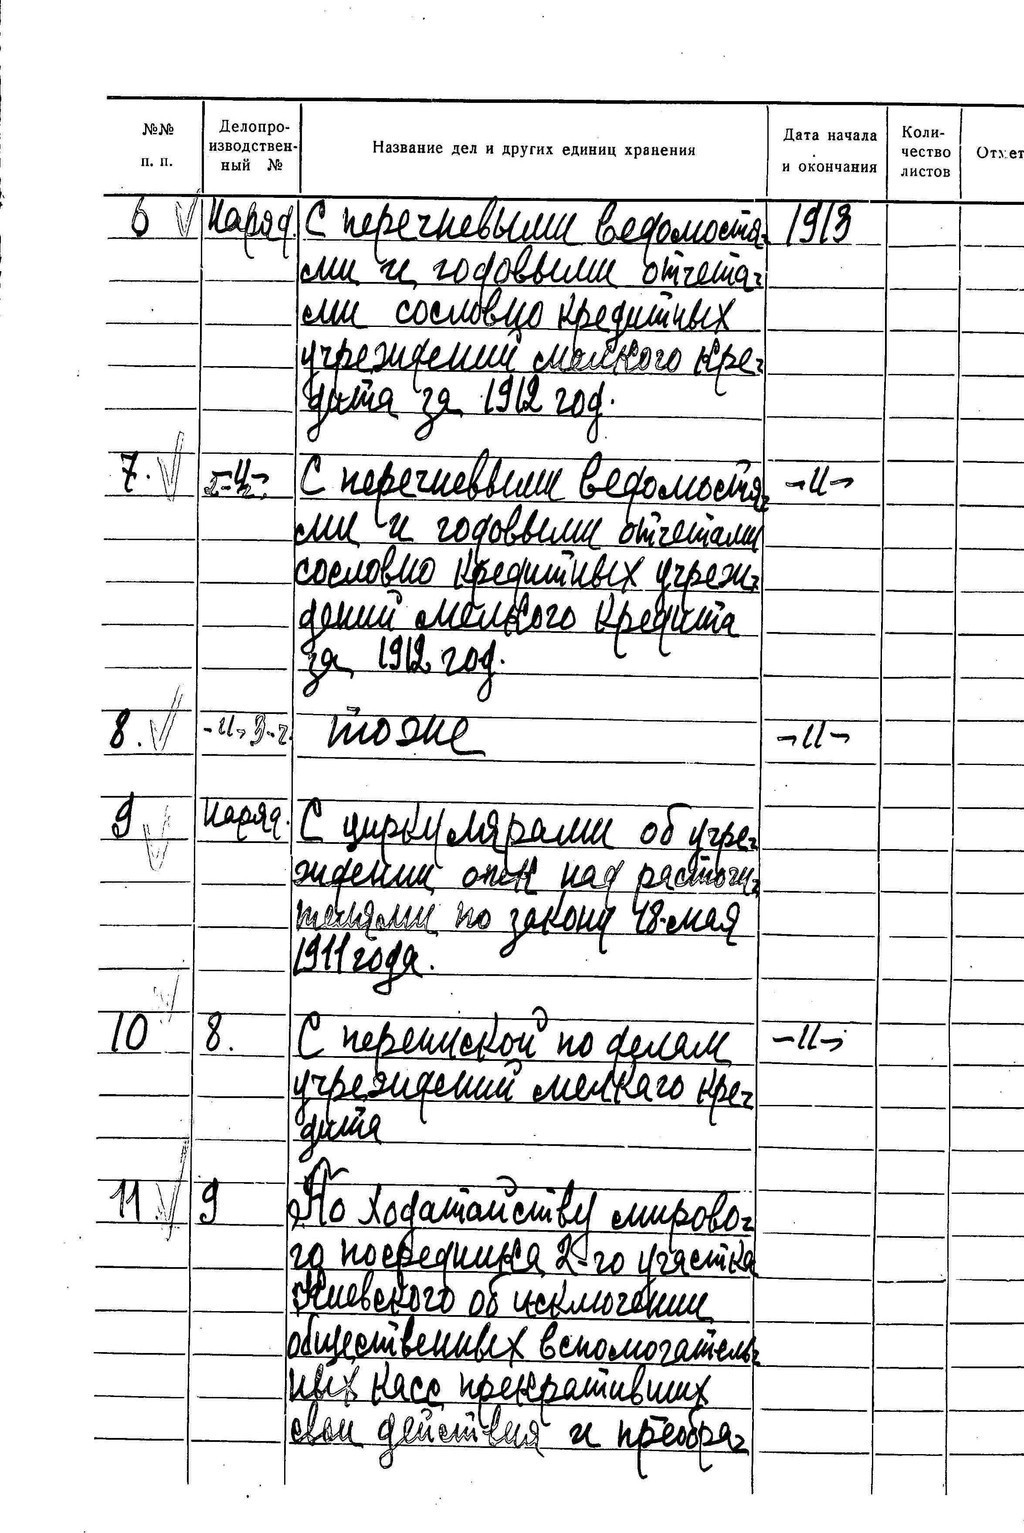 №№ п. п. Делопро-изводствен-ный № Название дел и других единиц хранения Дата начала и окончания Коли-чество листов Отмет
6 Наряд. С перечневыми ведомостя- 1913
ми и годовыми отчета-
ми сословно кредитных
учреждений мелкого кре-
дита за 1912 год.
7. -"- С перечневыми ведомостя- -"-
ми и годовыми отчетами
сословно кредитных учреж-
дений мелкого кредита
за 1912 год.
8. -"- 3-ч. тоже -"-
9 Наряд. С циркулярами об учре-
ждении опек над расточи-
телями по закону 18 мая
1911 года.
10 8. С перепиской по делам -"-
учреждений мелкаго кре-
дита
11 9 По ходатайству мирово-
го посредника 2-го участка
Киевского об исключении
общественных вспомогатель-
ных касс прекративших
свои действия и преобра-